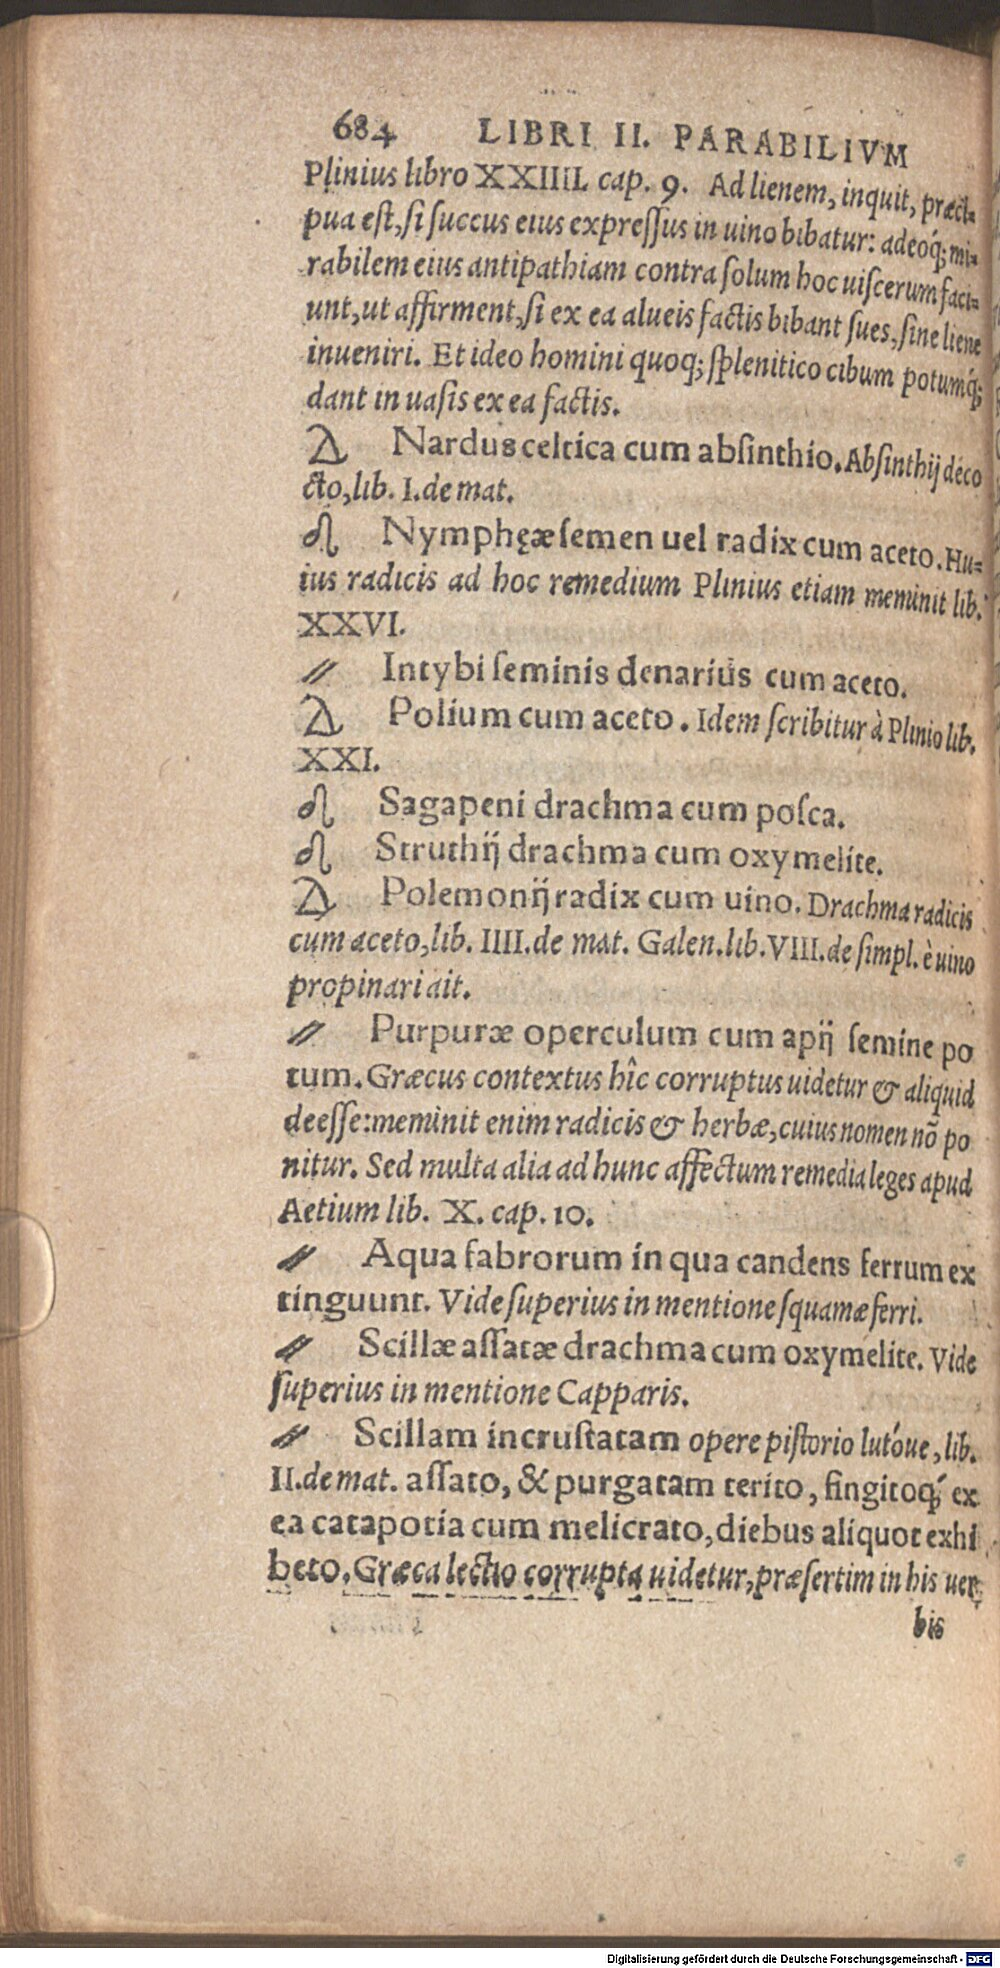 684 LIBRI II. PARABILIVM
Plinius libro XXIIII. cap. 9. Ad lienem, inquit, præci-
pua eſt, ſi ſuccus eius expreſſus in uino bibatur: adeoq́; mi-
rabilem eius antipathiam contra ſolum hoc uiſcerum faci-
unt, ut affirment, ſi ex ea alueis factis bibant ſues, ſine liene
inueniri. Et ideo homini quoq; ſplenitico cibum potumq́;
dant in uaſis ex ea factis.
Nardus celtica cum abſinthio. Abſinthij deco
cto, lib. I. de mat.
Nymphęæ ſemen uel radix cum aceto. Hu-
ius radicis ad hoc remedium Plinius etiam meminit lib.
XXVI.
Intybi ſeminis denarius cum aceto.
Polium cum aceto. Idem ſcribitur à Plinio lib.
XXI.
Sagapeni drachma cum poſca.
Struthij drachma cum oxymelite.
Polemonij radix cum uino. Drachma radicis
cum aceto, lib. IIII. de mat. Galen. lib. VIII. de ſimpl. è uino
propinari ait.
Purpuræ operculum cum apij ſemine po
tum. Græcus contextus hîc corruptus uidetur & aliquid
deeſſe: meminit enim radicis & herbæ, cuius nomen nõ po
nitur. Sed multa alia ad hunc affectum remedia leges apud
Aetium lib. X. cap. 10.
Aqua fabrorum in qua candens ferrum ex
tinguunt. Vide ſuperius in mentione ſquamæ ferri.
Scillæ aſſatæ drachma cum oxymelite. Vide
ſuperius in mentione Capparis.
Scillam incruſtatam opere piſtorio lutóue, lib.
II. de mat. aſſato, & purgatam terito, fingitoq́; ex
ea catapotia cum melicrato, diebus aliquot exhi
beto. Græca lectio corrupta uidetur, præſertim in his uer
bis
Digitalisierung gefördert durch die Deutsche Forschungsgemeinschaft - DFG